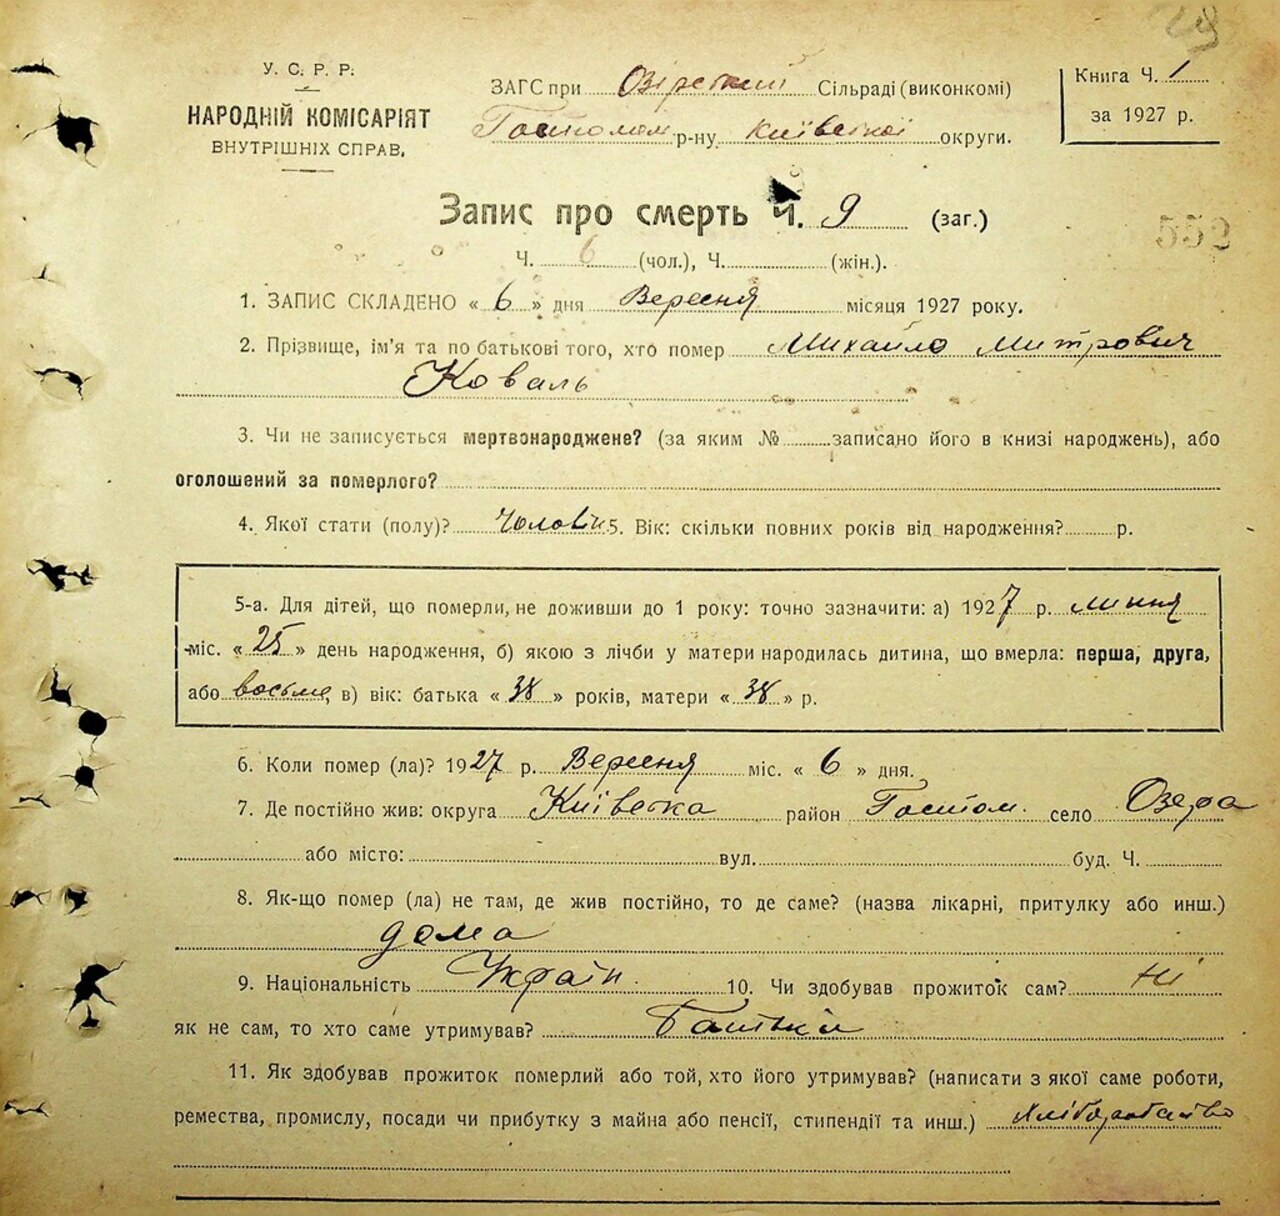 У. С. Р. Р.
НАРОДНІЙ КОМІСАРІЯТ
ВНУТРІШНІХ СПРАВ.
ЗАГС при Озірський Сільраді (виконкомі)
Гостомом р-ну Київської округи.
Книга Ч. 1
за 1927 р.
Запис про смерть Ч. 9 (заг.)
Ч. 6 (чол.), Ч. (жін.).
1. ЗАПИС СКЛАДЕНО « 6 » дня Вересня місяця 1927 року.
2. Прізвище, ім'я та по батькові того, хто помер Михайло Митрович
Коваль
3. Чи не записується мертвонароджене? (за яким № записано його в книзі народжень), або
оголошений за померлого?
4. Якої стати (полу)? Чоловіч 5. Вік: скільки повних років від народження? р.
5-а. Для дітей, що померли, не доживши до 1 року: точно зазначити: а) 1927 р. липня
міс. « 25 » день народження, б) якою з лічби у матери народилась дитина, що вмерла: перша, друга,
або восьме, в) вік: батька « 38 » років, матери « 38 » р.
6. Коли помер (ла)? 1927 р. Вересня міс. « 6 » дня.
7. Де постійно жив: округа Київська район Гостом. село Озера
або місто: вул. буд. Ч.
8. Як-що помер (ла) не там, де жив постійно, то де саме? (назва лікарні, притулку або инш.)
дома
9. Національність Україн. 10. Чи здобував прожиток сам? Ні
як не сам, то хто саме утримував? Батьки
11. Як здобував прожиток померлий або той, хто його утримував? (написати з якої саме роботи,
ремества, промислу, посади чи прибутку з майна або пенсії, стипендії та инш.) хліборобство